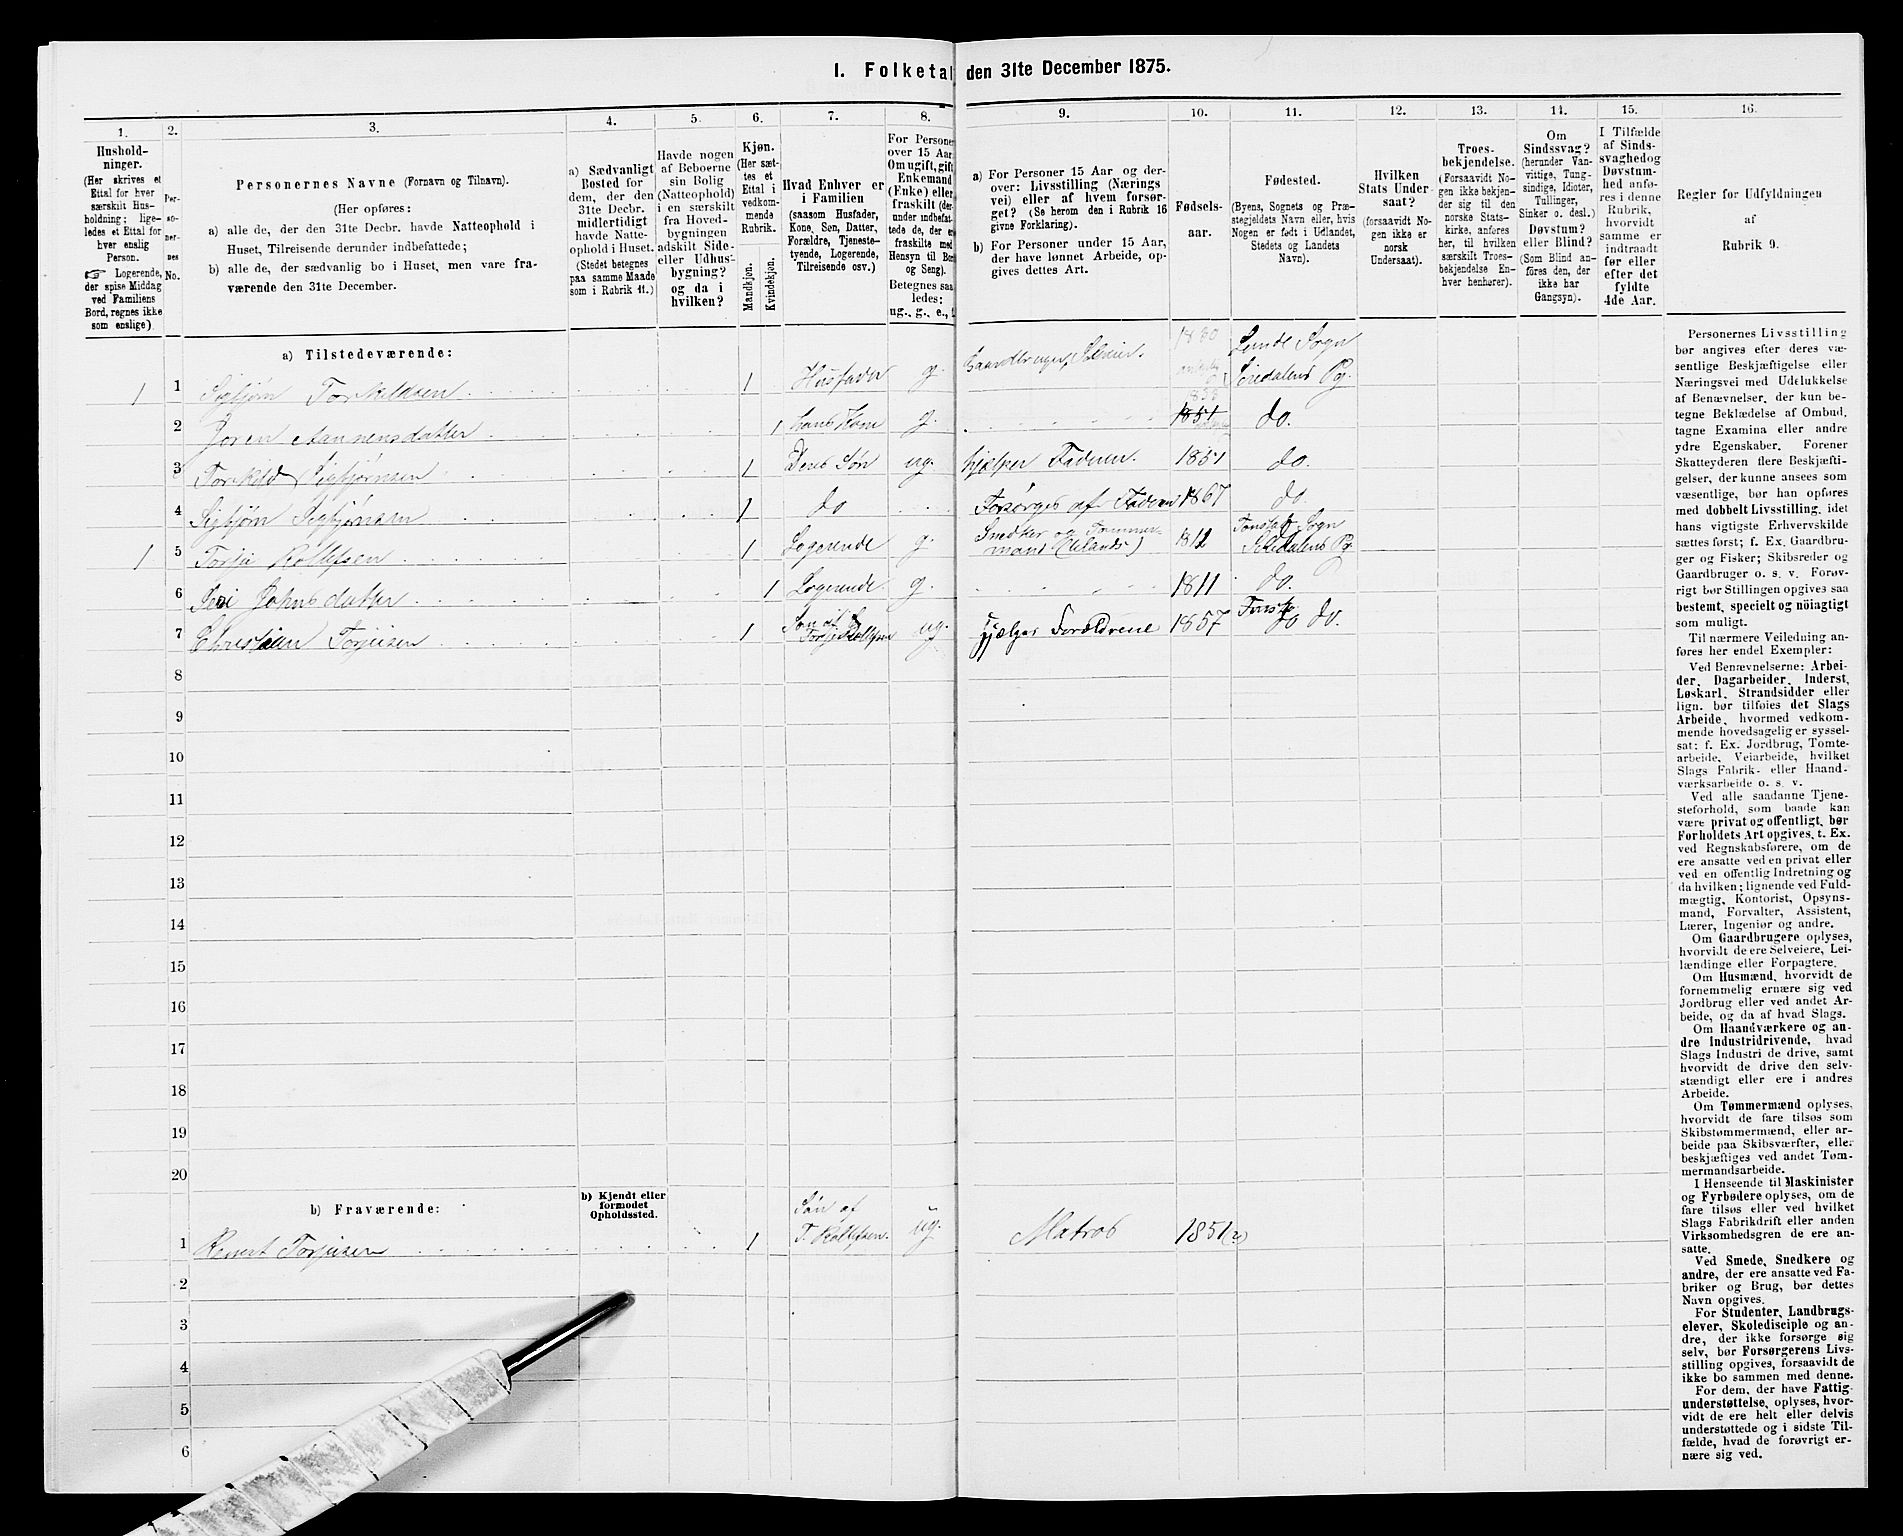 I. Folketal
den 31te December 1875.
1.
Hushold-
ninger.
(Her skrives et
Ettal for hver
særskilt Hus-
holdning; lige-
ledes et Ettal for
hver enslig
Person.
☞ Logerende,
der spise Middag
ved Familiens
Bord, regnes ikke
som enslige).
2.
Per-
so-
ner-
nes
No.
3.
Personernes Navne (Fornavn og Tilnavn).
(Her opføres:
a) alle de, der den 31te Decbr. havde Natteophold i
Huset, Tilreisende derunder indbefattede;
b) alle de, der sædvanlig bo i Huset, men vare fra-
værende den 31te December.
4.
a) Sædvanligt
Bosted for
dem, der den
31te Decbr.
midlertidigt
havde Natte-
ophold i Huset.
(Stedet betegnes
paa samme Maade
som i Rubrik 11.)
5.
Havde nogen
af Beboerne
sin Bolig
(Natteophold)
i en særskilt
fra Hoved-
bygningen
adskilt Side-
eller Udhus-
bygning?
og da i
hvilken?
6.
Kjøn.
(Her sæt-
tes et
Ettal i
vedkom-
mende
Rubrik.
Mandkjøn.
Kvindekjøn.
7.
Hvad Enhver er
i Familien
(saasom Husfader,
Kone, Søn, Datter,
Forældre, Tjeneste-
tyende, Logerende,
Tilreisende osv.)
8.
For Personer
over 15 Aar
Om ugift, gift,
Enkemand
(Enke) eller
fraskilt (der-
under indbefat-
tede de, der er
fraskilte med
Hensyn til Bord
og Seng).
Betegnes saa-
ledes:
ug., g., e., f.
9.
a) For Personer 15 Aar og der-
over: Livsstilling (Nærings
vei) eller af hvem forsør-
get? (Se herom den i Rubrik 16
givne Forklaring).
b) For Personer under 15 Aar,
der have lønnet Arbeide, op-
gives dettes Art.
10.
Fødsels-
aar.
11.
Fødested.
(Byens, Sognets og Præ-
stegjeldets Navn eller, hvis
Nogen er født i Udlandet,
Stedets og Landets
Navn).
12.
Hvilken
Stats Under-
saat?
(forsaavidt No-
gen ikke er
norsk
Undersaat).
13.
Troes-
bekjendelse.
(Forsaavidt No-
gen ikke bekjen-
der sig til den
norske Stats-
kirke, anføres
her, til hvilken
særskilt Troes-
bekjendelse En-
hver henhører).
14.
Om
Sindssvag?
(herunder Van-
vittige, Tung-
sindige, Idioter,
Tullinger,
Sinker o. desl.)
Døvstum?
eller Blind?
(Som Blind an-
føres den, der
ikke har
Gangsyn).
15.
I Tilfælde
af Sinds-
svaghed og
Døvstum-
hed anfø-
res i denne
Rubrik,
hvorvidt
samme er
indtraadt
før eller
efter det
fyldte
4de Aar.
16.
Regler for Udfyldningen
af
Rubrik 9.
a) Tilstedeværende:
1 1 Sigbjørn Torkildsen 1 Husfader g. Gaardbruger, Selveier. 1830 Lunde Sogn
Siredalens Pg.
2 Joren Aanensdatter 1 hans Kone g. 1851 do.
3 Torkild Sigbjørnsen 1 Deres Søn ug. hjælper Faderen. 1851 do.
4 Sigbjørn Sigbjørnsen 1 do Forsørges af Faderen 1867 do.
1 5 Torju Rollefsen 1 Logerende g. Snedker og Tømmer-
mand (Ilands) 1812 Tonstad Sogn
Siredalens Pg
6 Teri Johnsdatter 1 Logerende g. 1811 do.
7 Christian Torjusen 1 Søn af
Torju Rollefsen ug. hjælper Forældrene 1857 do do.
8
9
10
11
12
13
14
15
16
17
18
19
20
b) Fraværende:
b) Kjendt eller
formodet
Opholdssted.
1 Revert Torjusen 1 Søn af
T. Rollefsen. ug. Matros 1851(?)
2
3
4
5
6
Personernes Livsstilling
bør angives efter deres væ-
sentlige Beskjæftigelse eller
Næringsvei med Udelukkelse
af Benævnelser, der kun be-
tegne Beklædelse af Ombud,
tagne Examina eller andre
ydre Egenskaber. Forener
Skatteyderen flere Beskjæfti-
gelser, der kunne ansees som
væsentlige, bør han opføres
med dobbelt Livsstilling, idet
hans vigtigste Erhvervskilde
sættes først; f. Ex. Gaardbru-
ger og Fisker; Skibsreder og
Gaardbruger o. s. v. Forøv-
rigt bør Stillingen opgives saa
bestemt, specielt og nøiagtigt
som muligt.
Til nærmere Veiledning an-
føres her endel Exempler:
Ved Benævnelserne: Arbei-
der, Dagarbeider, Inderst,
Løskarl, Strandsidder eller
lign. bør tilføies det Slags
Arbeide, hvormed vedkom-
mende hovedsagelig er syssel-
sat: f. Ex. Jordbrug, Tomte-
arbeide, Veiarbeide, hvilket
Slags Fabrik- eller Haand-
værksarbeide o. s. v.
Ved alle saadanne Tjene-
steforhold, som baade kan
være privat og offentligt, bør
Forholdets Art opgives, t. Ex.
ved Regnskabsførere, om de
ere ansatte ved en privat eller
ved en offentlig Indretning og
da hvilken; lignende ved Fuld-
mægtig, Kontorist, Opsyns-
mand, Forvalter, Assistent,
Lærer, Ingeniør og andre.
Om Gaardbrugere oplyses,
hvorvidt de ere Selveiere, Lei-
lændinge eller Forpagtere.
Om Husmænd, hvorvidt de
fornemmelig ernære sig ved
Jordbrug eller ved andet Ar-
beide, og da af hvad Slags.
Om Haandværkere og an-
dre Industridrivende, hvad
Slags Industri de drive, samt
hvorvidt de drive den selv-
stændigt eller ere i andres
Arbeide.
Om Tømmermænd oplyses,
hvorvidt de fare tilsøs som
Skibstømmermænd, eller ar-
beide paa Skibsværfter, eller
beskjæftiges ved andet Tøm-
mermandsarbeide.
I Henseende til Maskinister
og Fyrbødere oplyses, om de
fare tilsøs eller ved hvilket
Slags Fabrikdrift eller anden
Virksomhedsgren de ere an-
satte.
Ved Smede, Snedkere og
andre, der ere ansatte ved Fa-
briker og Brug, bør dettes
Navn opgives.
For Studenter, Landbrugs-
elever, Skoledisciple og an-
dre, der ikke forsørge sig
selv, bør Forsørgerens Livs-
stilling opgives, forsaavidt de
ikke bo sammen med denne.
For dem, der have Fattig-
understøttelse, oplyses, hvor-
vidt de ere helt eller delvis
understøttede og i sidste Til-
fælde, hvad de forøvrigt er-
nære sig ved.